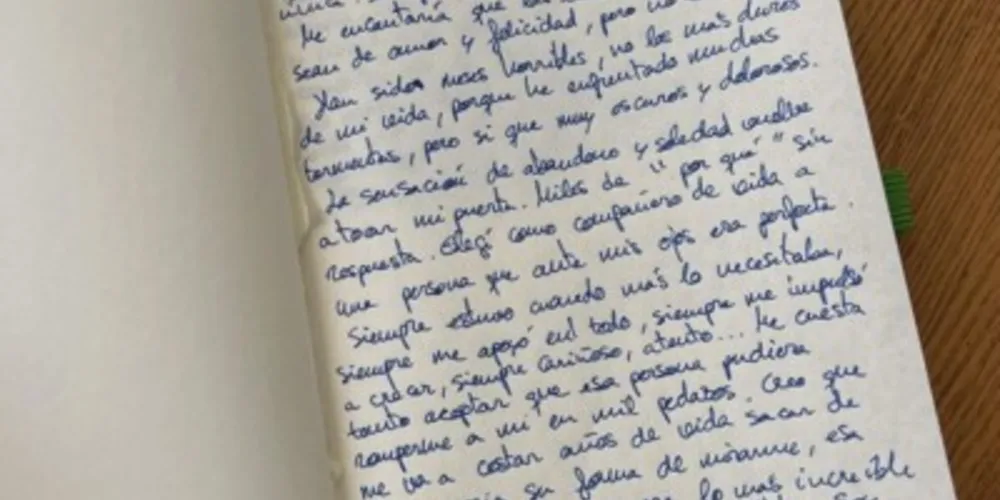 Me encantaría que
sean de amor y felicidad, pero no
Han sido meses horribles, no los más duros
de mi vida, porque he enfrentado muchas
tormentas, pero si que muy oscuros y dolorosos.
La sensación de abandono y soledad vuelve
a tocar mi puerta. Miles de "por qué" sin
respuesta. Elegí como compañero de vida a
una persona que ante mis ojos era perfecta.
Siempre estuvo cuando más lo necesitaba,
siempre me apoyó en todo, siempre me impulsó
a crecer, siempre cariñoso, atento... Me cuesta
tanto aceptar que esa persona pudiera
romperme a mi en mil pedazos. Creo que
me va a costar años de vida sacar de
su forma de mirarme, esa
lo más increíble